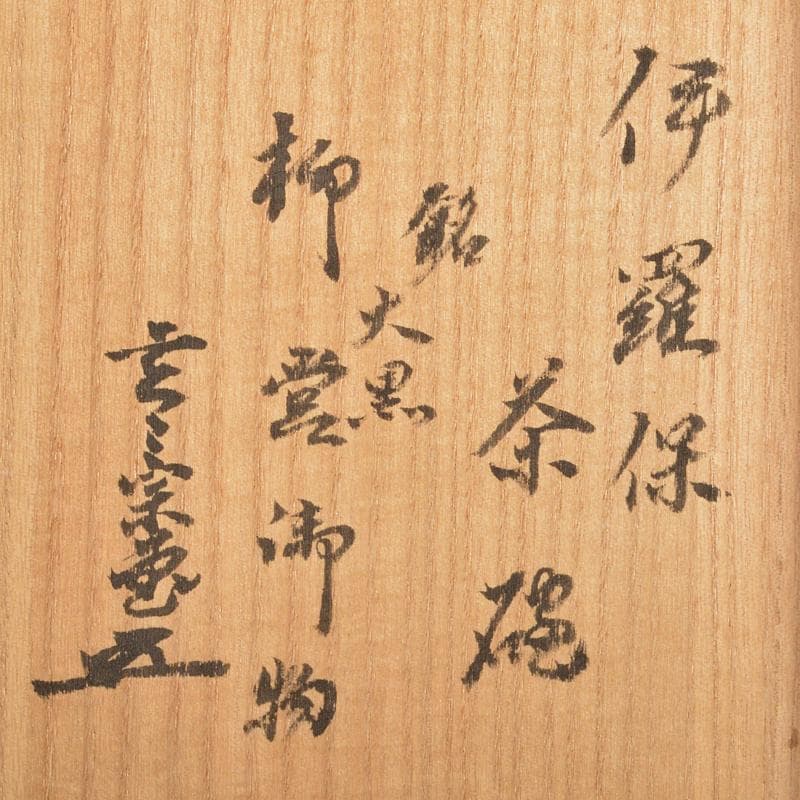 伊羅保
茶碗
銘
大黒
柳営御物
宗